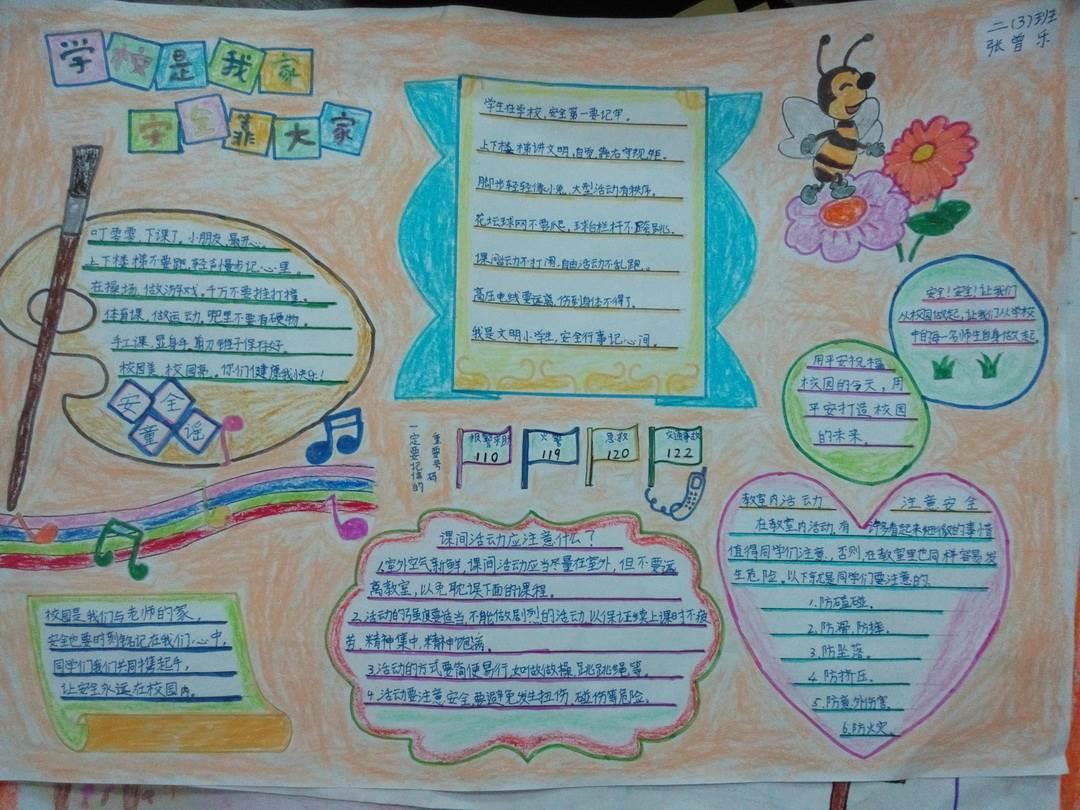 学校是我家
安全靠大家
二(3)班
张曾乐
叮零零,下课了,小朋友,最开心。
上下楼梯不要跑,轻声慢步记心里。
在操场,做游戏,千万不要推打撞。
体育课,做运动,兜里不要有硬物。
手工课,显身手,剪刀锥子保存好。
校园美 校园亮,你们健康我快乐!
安全
童谣
学生在学校,安全第一要记牢。
上下楼梯讲文明,自觉靠右守规矩。
脚步轻轻像小兔,大型活动有秩序。
花坛球网不要爬,球台栏杆不跨跳。
课间活动不打闹,自由活动不乱跑。
高压电线要远离,伤到身体不得了。
我是文明小学生,安全行事记心间。
安全!安全!让我们
从校园做起,让我们从学校
中的每一名师生自身做起。
用平安祝福
校园的今天,用
平安打造校园
的未来。
重要号码
一定要记住的
报警求助
110
火警
119
急救
120
交通事故
122
校园是我们与老师的家,
安全也要时刻铭记在我们心中,
同学们我们共同携起手,
让安全永远在校园内。
课间活动应注意什么?
1.室外空气新鲜,课间活动应当尽量在室外,但不要远
离教室,以免耽误下面的课程。
2.活动的强度要适当,不能做剧烈的活动,以保证继续上课时不疲
劳,精神集中,精神饱满。
3.活动的方式要简便易行,如做做操,跳跳绳等。
4.活动要注意安全,要避免发生扭伤,碰伤等危险。
教室内活动 注意安全
在教室内活动,有许多看起来细微的事情
值得同学们注意,否则,在教室里也同样容易发
生危险。以下就是同学们要注意的
1.防磕碰。
2.防滑,防摔。
3.防坠落。
4.防挤压。
5.防意外伤害。
6.防火灾。